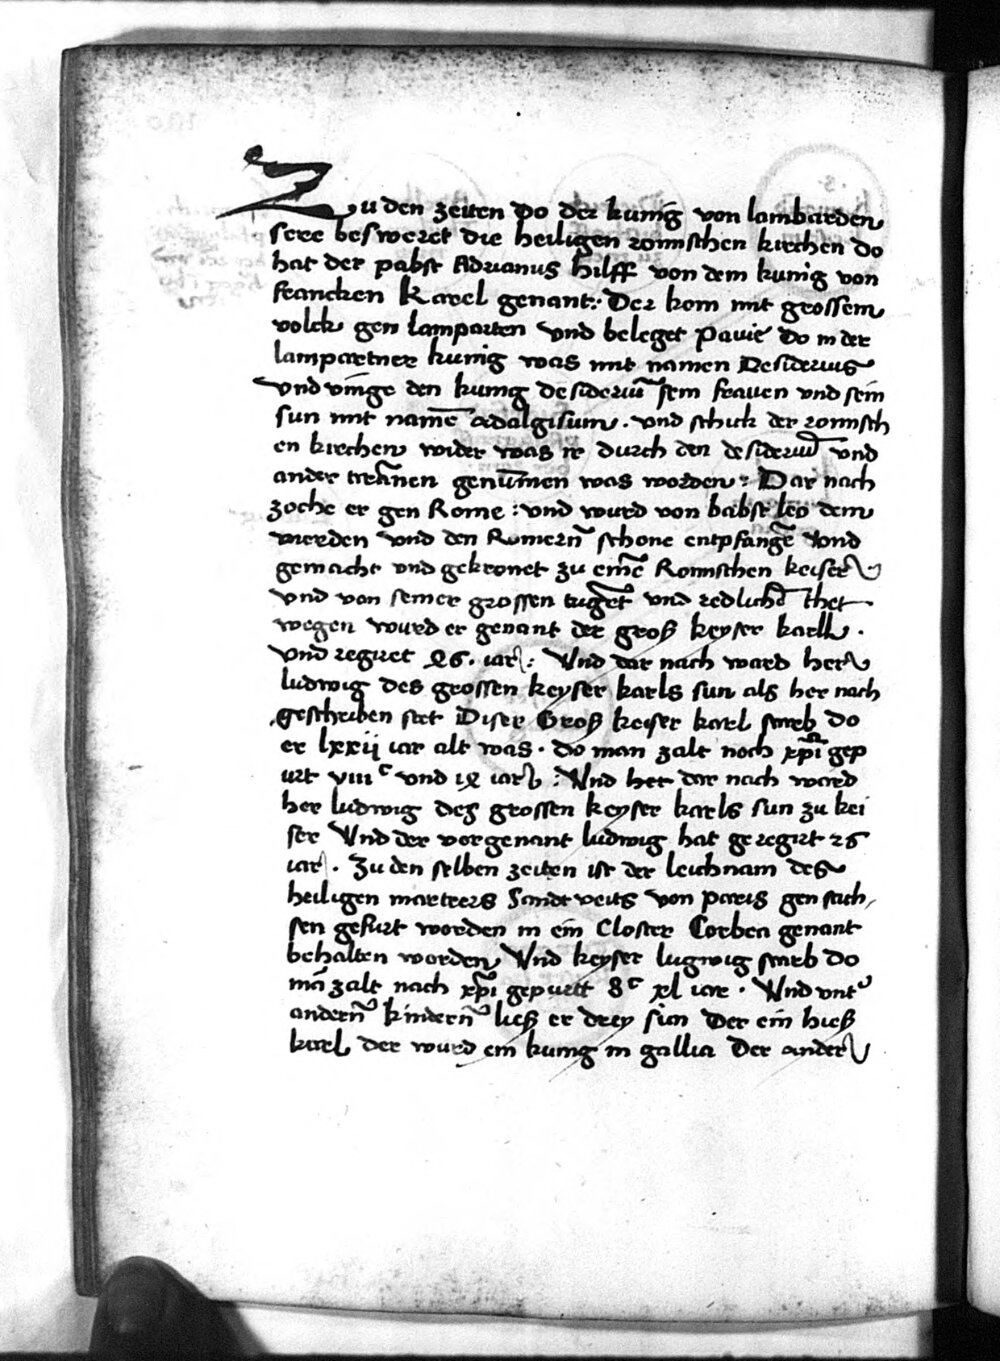 Zu den zeiten do der kunig von lambarden
sere besweret die heiligen romischen kirchen do
hat der pabst Adrianus hilff von dem kunig von
francken Karel genant : Der kom mit grossem
volck gen lamparten vnd beleget pauie do in der
lampartner kunig was mit namen Desiderius
vnd vinge den kunig desideriu̅ sein frauen vnd sein
sun mit name̅ adalgisum . vnd schick der romisch
en kirchen wider was ir durch den desideriu̅ vnd
ander tira̅nen genu̅men was worden : Dar nach
zoche er gen Rome : vnd wurd von babst leo dem
vierden vnd den Romern̅ schone entpfange̅ vnd
gemacht vnd gekronet zu eine̅ Romischen keiser
vnd von seiner grossen tuge̅t vnd redliche̅ thet
wegen wurd er genant der groß keyser karll .
vnd regiret 46 . iar : Vnd dar nach ward her
ludwig des grossen keyser karls sun als her nach
geschriben stet Diser Groß keiser karl starb do
er lxxij iar alt was . do man zalt noch xp̅i gep
urt viiiᶜ vnd ix iar : Vnd het dar nach ward
her ludwig des grossen keyser karls sun zu kei
ser Vnd der vorgenant ludwig hat geregirt 26
iar . Zu den selben zeiten ist der leichnam des
heiligen marterers Sandt veits von paris gen sach
sen gefurt worden in ein Closter Corbea genant
behalten worden Vnd keyser lugwig starb do
ma̅ zalt nach xp̅i gepurtt 8ᶜ xl iare . Vnd vnt'
andern̅ kindern̅ ließ er drey sün Der ein hieß
karl der wurd ein kunig in gallia Der ander